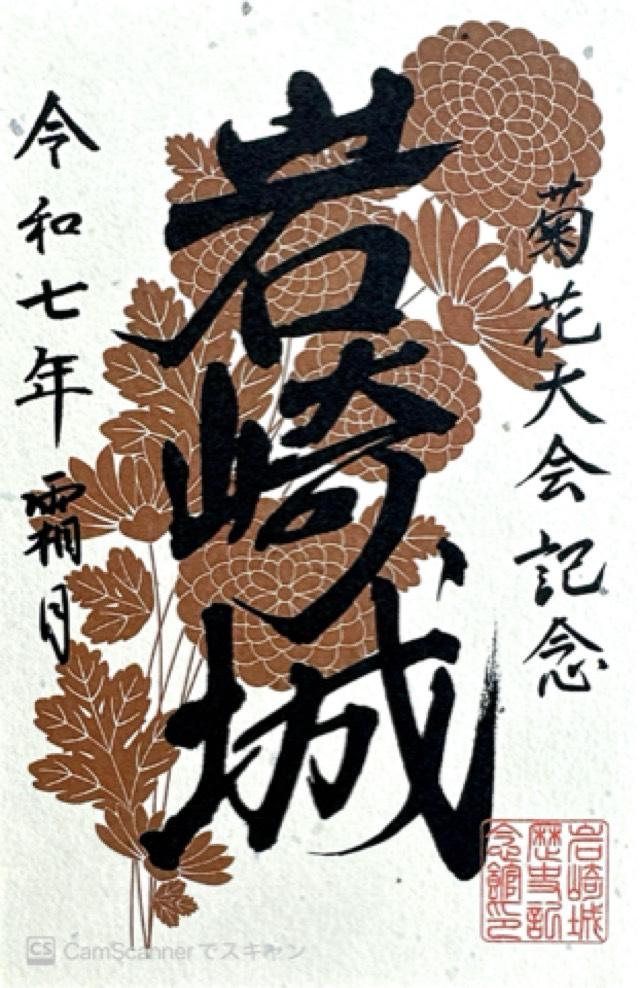 菊花大会記念
岩崎城
令和七年霜月
岩崎城
歴史記
念館印
CS CamScannerでスキャン